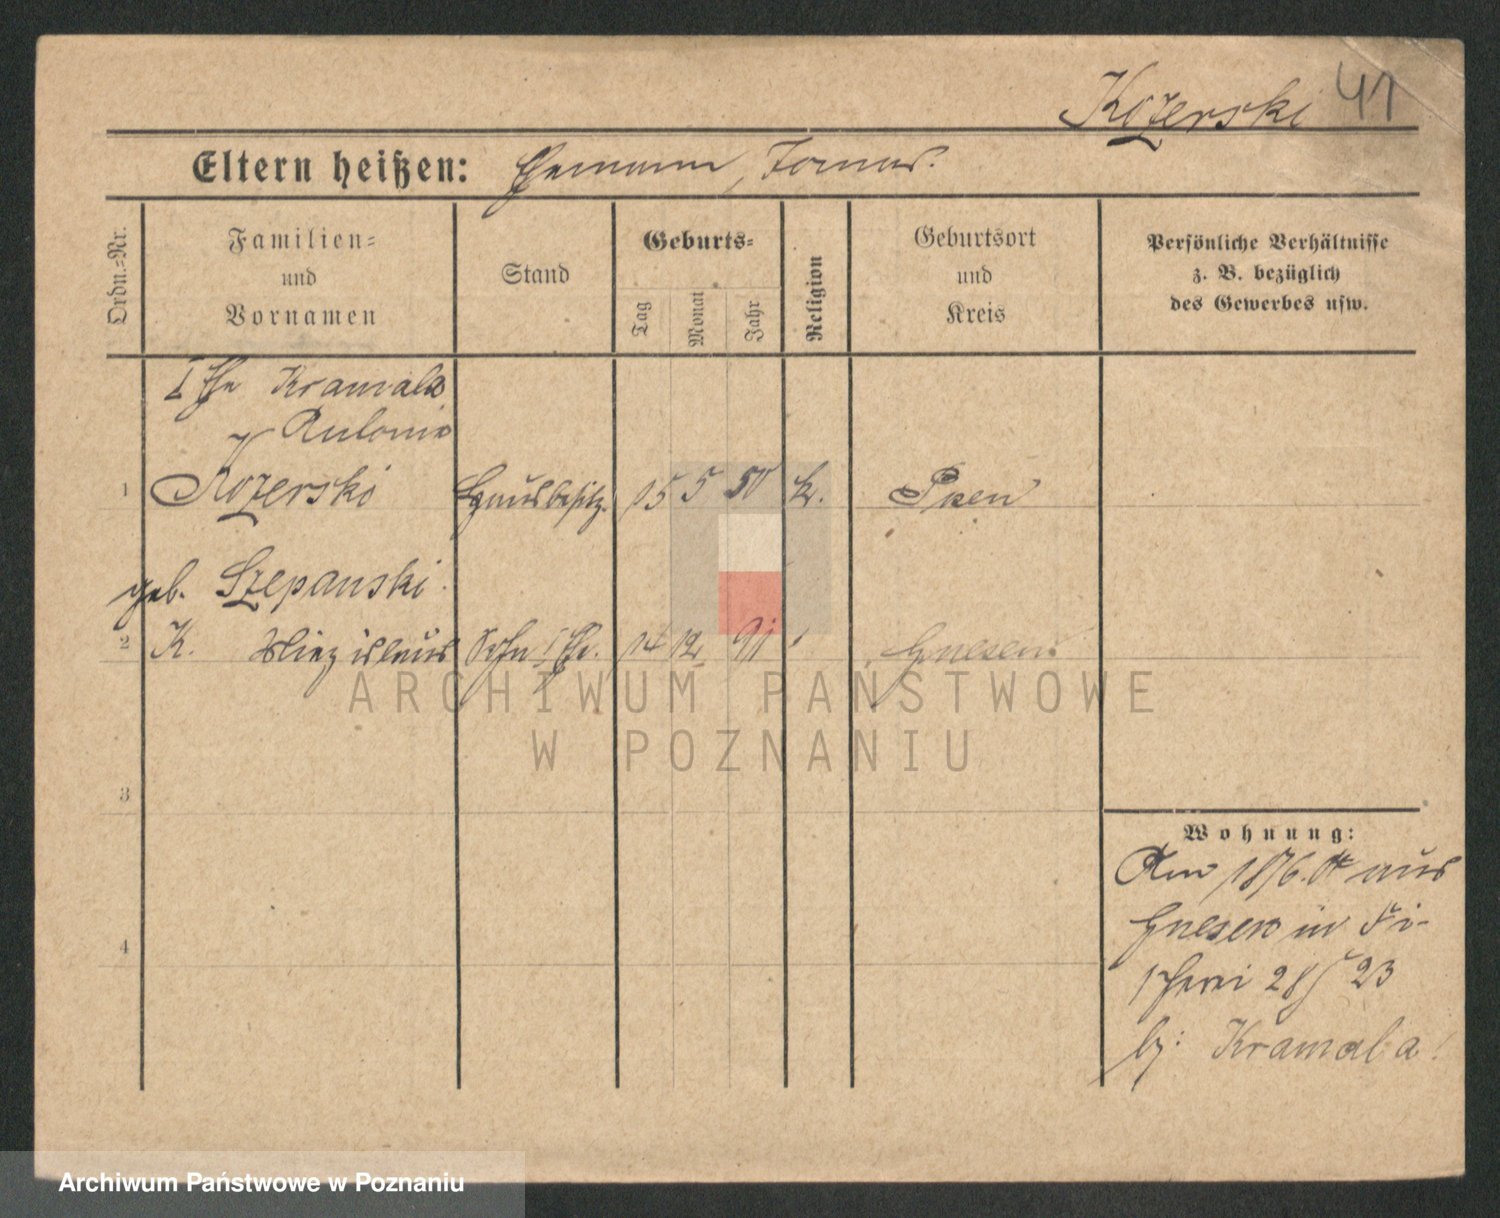 Kozerski 41
Eltern heißen:
Ordn.-Nr.
Familien-
und
Vornamen
Stand
Geburts-
Tag
Monat
Jahr
Religion
Geburtsort
und
Kreis
Persönliche Verhältnisse
z. B. bezüglich
des Gewerbes usw.
I Ehe Kramala
1 Kozerski Hausbesitz. 15 5 50 k. Posen
geb. Szepanski.
2 K. Sohn I Ehe. 14 12 91 Gnesen
3
4
Wohnung:
Am aus
Gnesen in Fi-
scherei 28/23
bj: Kramala!
ARCHIWUM PAŃSTWOWE
W POZNANIU
Archiwum Państwowe w Poznaniu